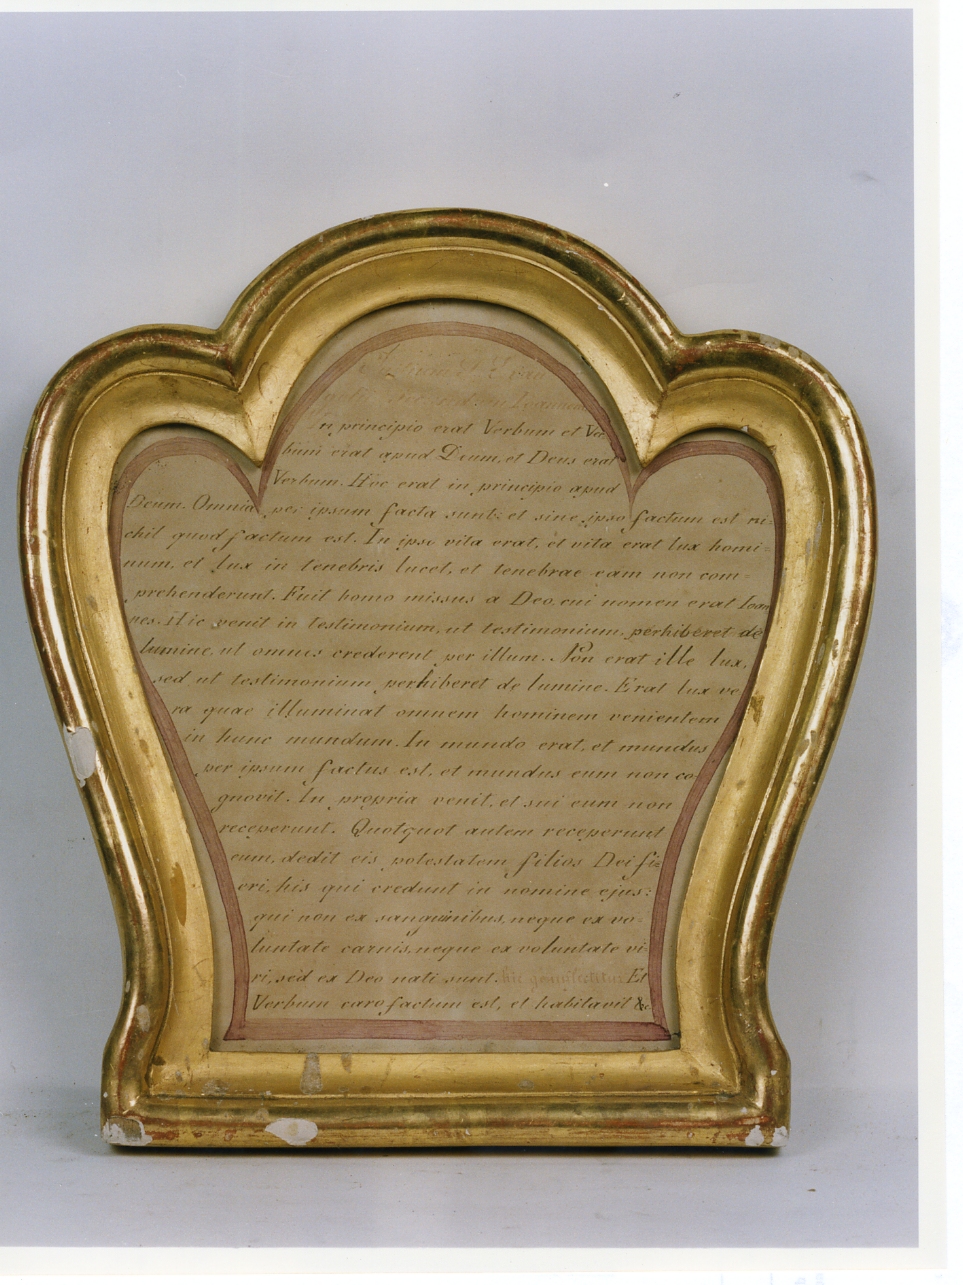 secundum Joannem
In principio erat Verbum et Ver-
bum erat apud Deum, et Deus erat
Verbum. Hoc erat in principio apud
Deum. Omnia per ipsum facta sunt: et sine ipso factum est ni=
chil quod factum est. In ipso vita erat, et vita erat lux homi=
num, et lux in tenebris lucet, et tenebrae eam non com=
prehenderunt. Fuit homo missus a Deo, cui nomen erat Ioan
nes. Hic venit in testimonium, ut testimonium perhiberet de
lumine, ut omnes crederent per illum. Non erat ille lux,
sed ut testimonium perhiberet de lumine. Erat lux ve
ra quae illuminat omnem hominem venientem
in hunc mundum. In mundo erat, et mundus
per ipsum factus est, et mundus eum non co-
gnovit. In propria venit, et sui eum non
receperunt. Quotquot autem receperunt
eum, dedit eis potestatem filios Dei fi=
eri, his qui credunt in nomine ejus:
qui non ex sanguinibus, neque ex vo-
luntate carnis, neque ex voluntate vi=
ri, sed ex Deo nati sunt. Et
Verbum caro factum est, et habitavit &c